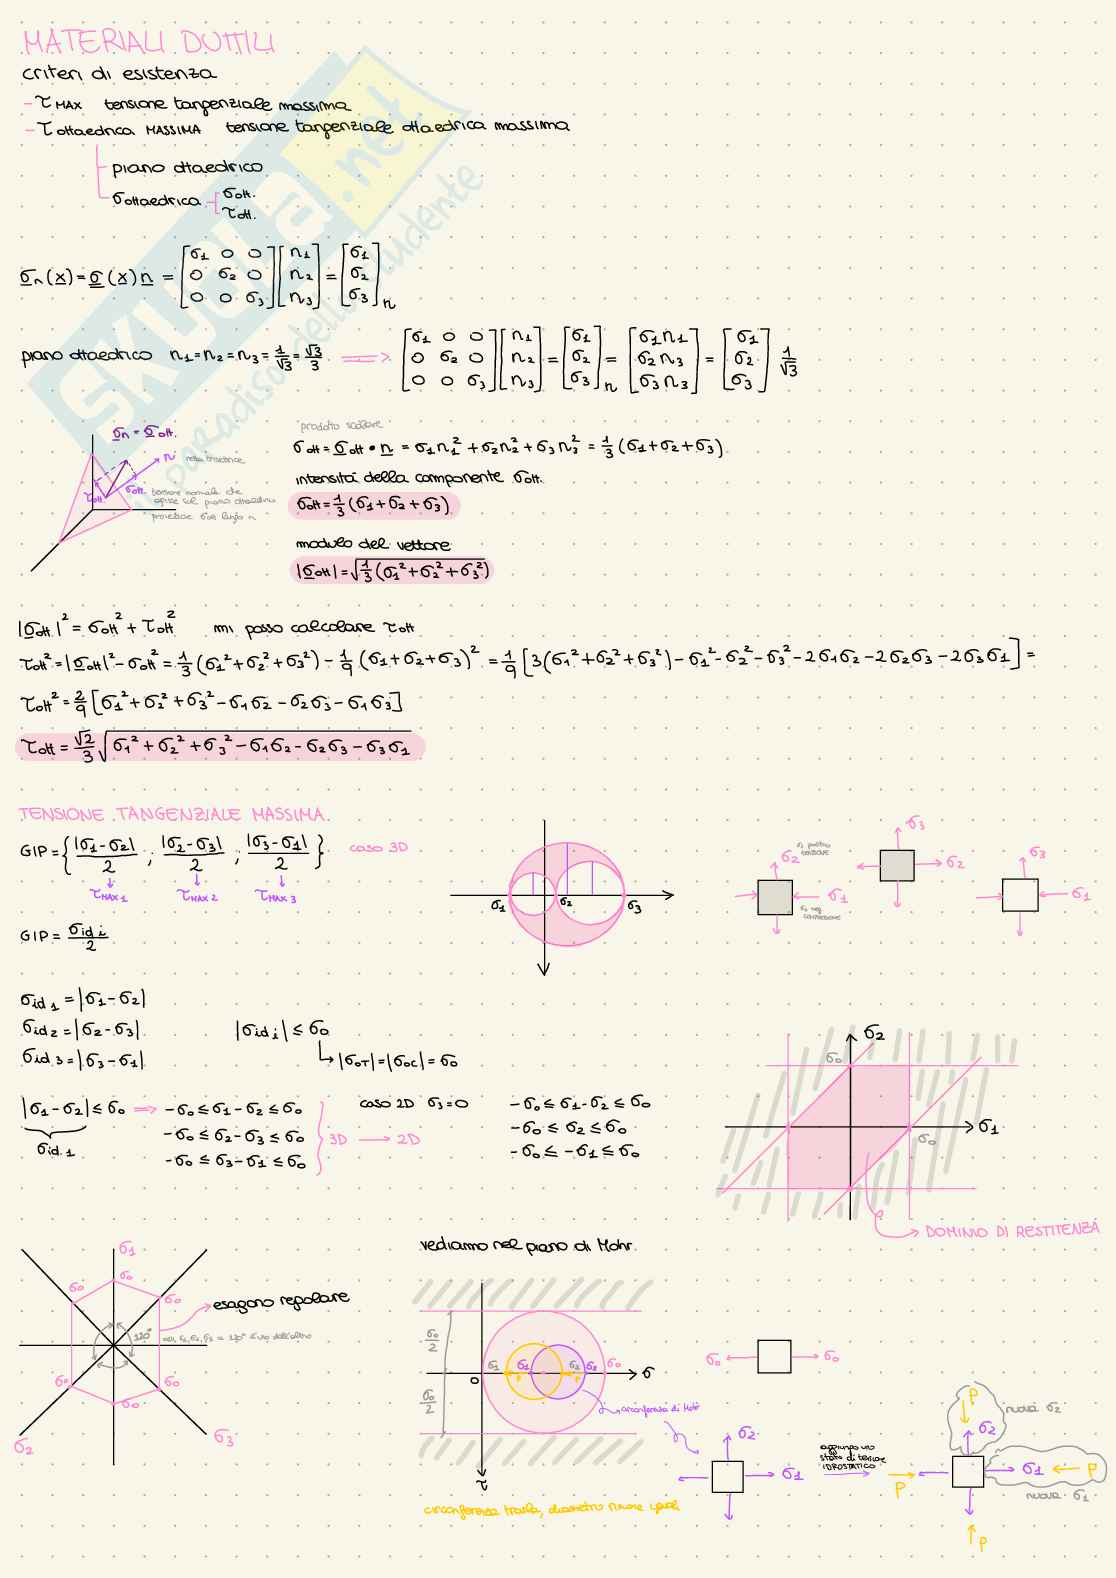 MATERIALI DUTTILI
criteri di esistenza
- τ MAX tensione tangenziale massima
- τ ottaedrica MASSIMA tensione tangenziale ottaedrica massima
piano ottaedrico
σottaedrica σott.
τott.
SKUOLA.net
il paradiso dello studente
σn(x) = σ(x) n = [σ1 0 0; 0 σ2 0; 0 0 σ3] [n1; n2; n3] = [σ1; σ2; σ3]n
piano ottaedrico n1=n2=n3= 1/√3 = √3/3 ⟹ [σ1 0 0; 0 σ2 0; 0 0 σ3] [n1; n2; n3] = [σ1; σ2; σ3]n = [σ1n1; σ2n3; σ3n3] = [σ1; σ2; σ3] 1/√3
σn = σott.
n
τott
σott.
tensione normale che
agisce sul piano ottaedrico
proiezione σott lungo n
prodotto scalare
σott = σott • n = σ1n1² + σ2n2² + σ3n3² = 1/3 (σ1+σ2+σ3)
intensità della componente σott.
σott = 1/3 (σ1 + σ2 + σ3)
modulo del vettore
|σott| = √(1/3 (σ1² + σ2² + σ3²))
|σott|² = σott² + τott² mi posso calcolare τott
τott² = |σott|² - σott² = 1/3 (σ1² + σ2² + σ3²) - 1/9 (σ1 + σ2 + σ3)² = 1/9 [3(σ1² + σ2² + σ3²) - σ1² - σ2² - σ3² - 2σ1σ2 - 2σ2σ3 - 2σ3σ1] =
τott² = 2/9 [σ1² + σ2² + σ3² - σ1σ2 - σ2σ3 - σ1σ3]
τott = √2/3 √(σ1² + σ2² + σ3² - σ1σ2 - σ2σ3 - σ3σ1)
TENSIONE TANGENZIALE MASSIMA
GIP = {|σ1-σ2|/2 ; |σ2-σ3|/2 ; |σ3-σ1|/2} caso 3D
τMAX1 τMAX2 τMAX3
σ1 σ2 σ3
σ2 σ1
σ3 σ2
σ3 σ1
GIP = σid i/2
σid1 = |σ1-σ2|
σid2 = |σ2-σ3| |σid i| ≤ σ0
σid3 = |σ3-σ1| → |σOT| = |σOC| = σ0
|σ1-σ2| ≤ σ0 ⟹ -σ0 ≤ σ1-σ2 ≤ σ0
σid.1
-σ0 ≤ σ2-σ3 ≤ σ0
-σ0 ≤ σ3-σ1 ≤ σ0
3D → 2D
caso 2D σ3=0
-σ0 ≤ σ1-σ2 ≤ σ0
-σ0 ≤ σ2 ≤ σ0
-σ0 ≤ -σ1 ≤ σ0
σ2
σ0
σ1
σ0
DOMINIO DI RESTITENZA
σ1
σ0 σ0 σ0
120°
σ0 σ0 σ0
σ2 σ3
esagono regolare
vediamo nel piano di Mohr
σ0/2
σ0/2
0 σ1 σ1 σ2 σ2 σ0 σ
p p
τ
circonferenza di Mohr
circonferenza trasla, diametro rimane uguale
σ0 σ0
σ2
σ1
aggiungo uno
stato di tensione
IDROSTATICO
p
nuova σ2
σ2
σ1 p
p
nuova σ1
p